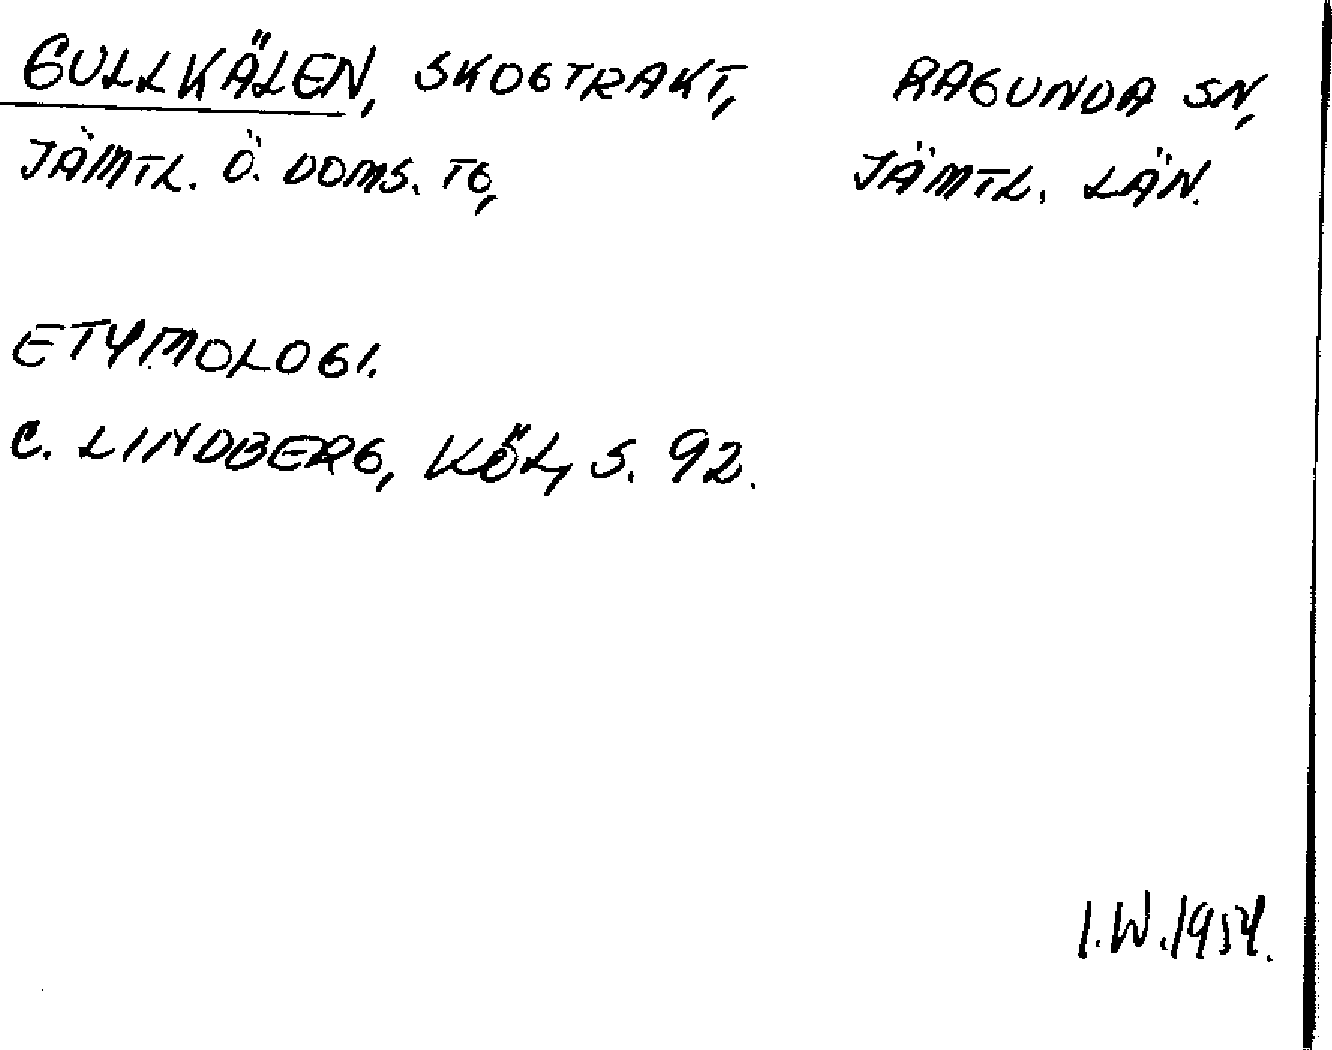 GULLKÄLEN, SKOGTRAKT, RAGUNDA SN,
JÄMTL. Ö. DOMS. TG, JÄMTL. LÄN.
ETYMOLOGI.
C. LINDBERG, KÖL, S. 92.
I.W. 1954.